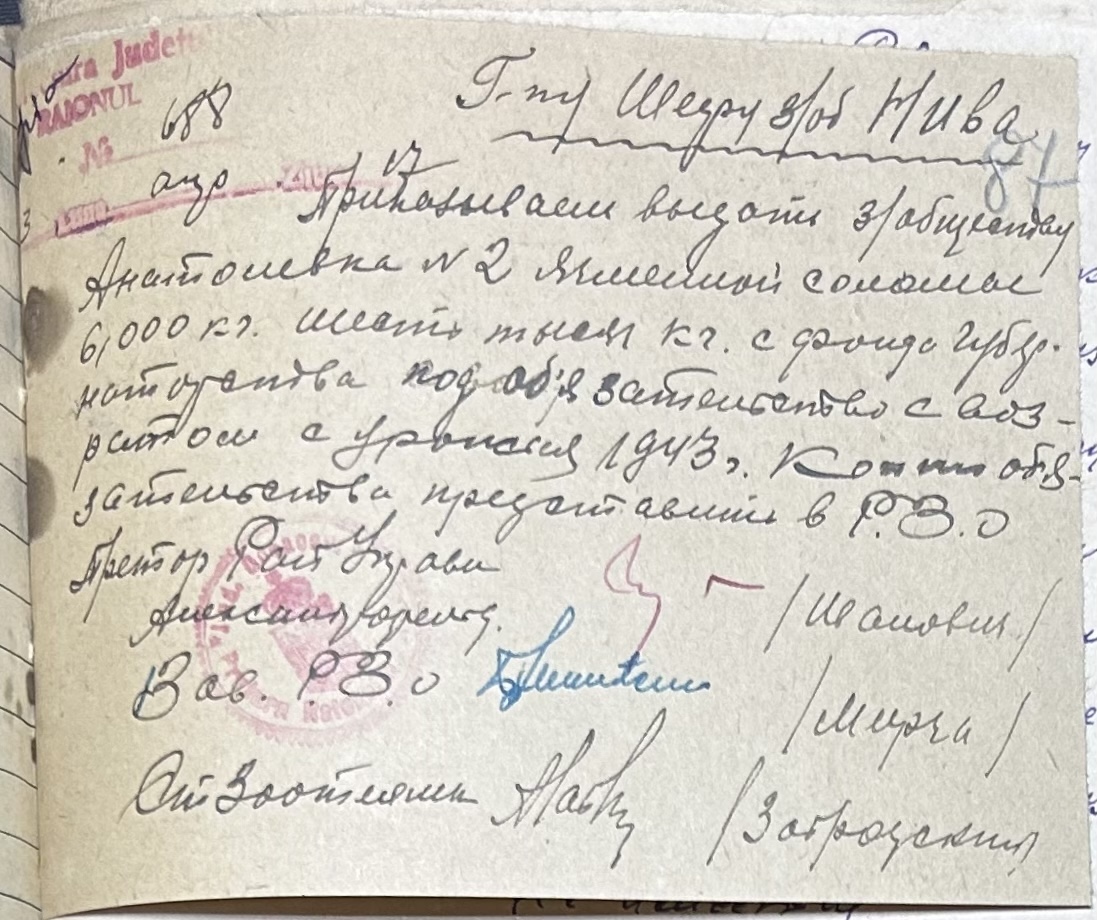 Judet
RAIONUL
№ 688
апр 17
Г-ну Шефу з/об Нива
87
Приказываем выдать з/обществу
Анатолевка N 2 Ячменной соломы
6,000 кг. шесть тысяч кг. с фонда Губер-
наторства под обязательство с воз-
ратом с урожая 1943 г. Копии обя-
зательства представить в Р.З.О
Претор Рай Управы
Александрфельд.
/Шалович/
Зав. Р.З.О
/Мирча/
Ст Зоотехник
/Забродский